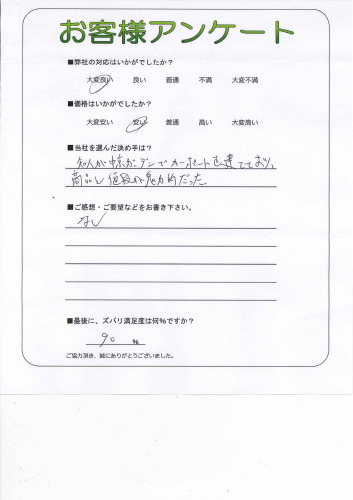 お客様アンケート
■弊社の対応はいかがでしたか?
大変良い 良い 普通 不満 大変不満
■価格はいかがでしたか?
大変安い 安い 普通 高い 大変高い
■当社を選んだ決め手は?
知人が中京ガーデンでカーポートを建てており、
商品と値段が魅力的だった
■ご感想・ご要望などをお書き下さい。
なし
■最後に、ズバリ満足度は何%ですか?
90 %
ご協力頂き、誠にありがとうございました。